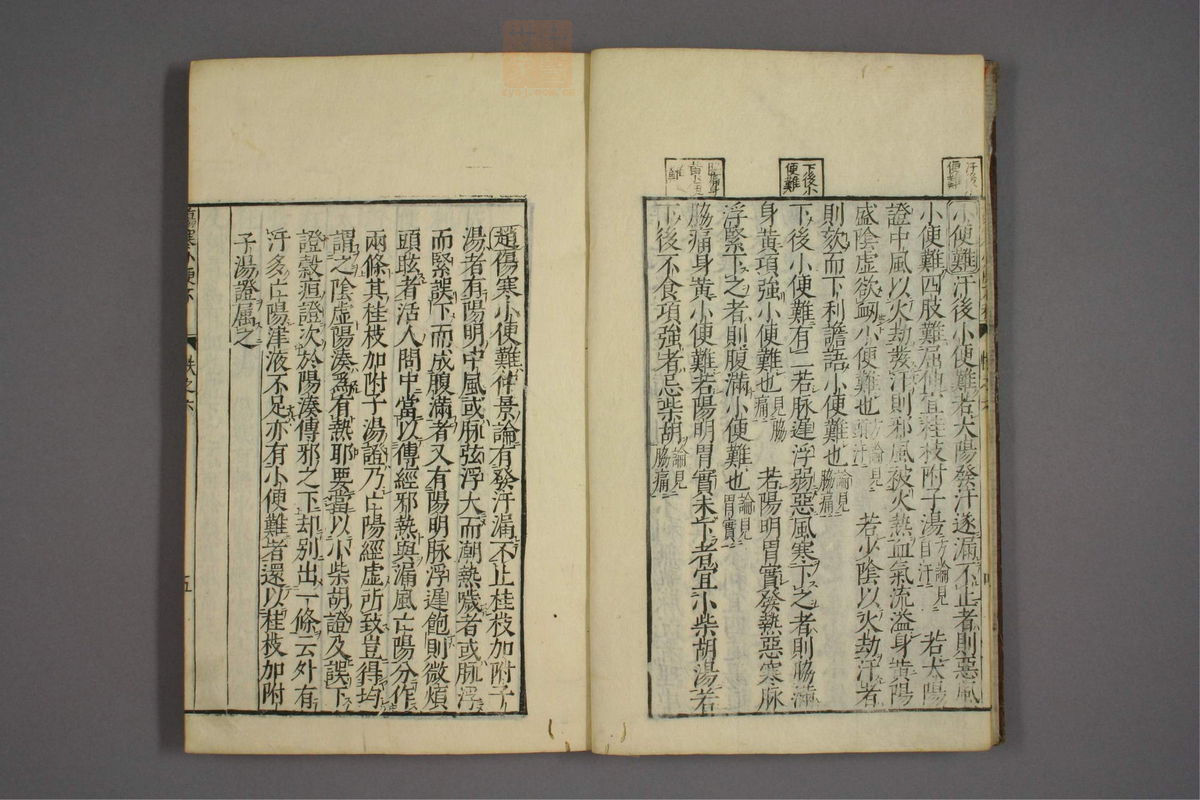 汗後小
便難
小便難汗後小便難若太陽發汗遂漏不止者則惡風
小便難四肢難屈伸宜桂枝附子湯方論見自汗 若太陽
證中風以火劫發汗則邪風被火熱血氣流溢身黄陽
盛陰虛欲衂小便難也方論見頭汗 若少陰以火劫汗者
則欬而下利譫語小便難也論見脇痛
下後小
便難
下後小便難有二若脉遲浮弱惡風寒下之者則脇滿
身黄項強小便難也見脇痛 若陽明胃實發熱惡寒脉
浮緊下之者則腹滿小便難也論見胃實
脇痛身
黄便
難
脇痛身黄小便難若陽明胃實未下者宜小柴胡湯若
下後不食項強者忌柴胡論見脇痛
趙傷寒小便難仲景論有發汗漏不止桂枝加附子
湯者有陽明中風或脉弦浮大而潮熱噦者或脉浮
而緊誤下而成腹滿者又有陽明脉浮遲飽則微煩
頭眩者活人問中當以傳經邪熱與漏風亡陽分作
兩條其桂枝加附子湯證乃亡陽經虛所致豈得均
謂之陰虛陽湊爲有熱耶要當以小柴胡證及誤下
證穀疸證次於陽湊傳邪之下却别出一條云外有
汗多亡陽津液不足亦有小便難者還以桂枝加附
子湯證屬之
傷寒小便六 帙之六 五